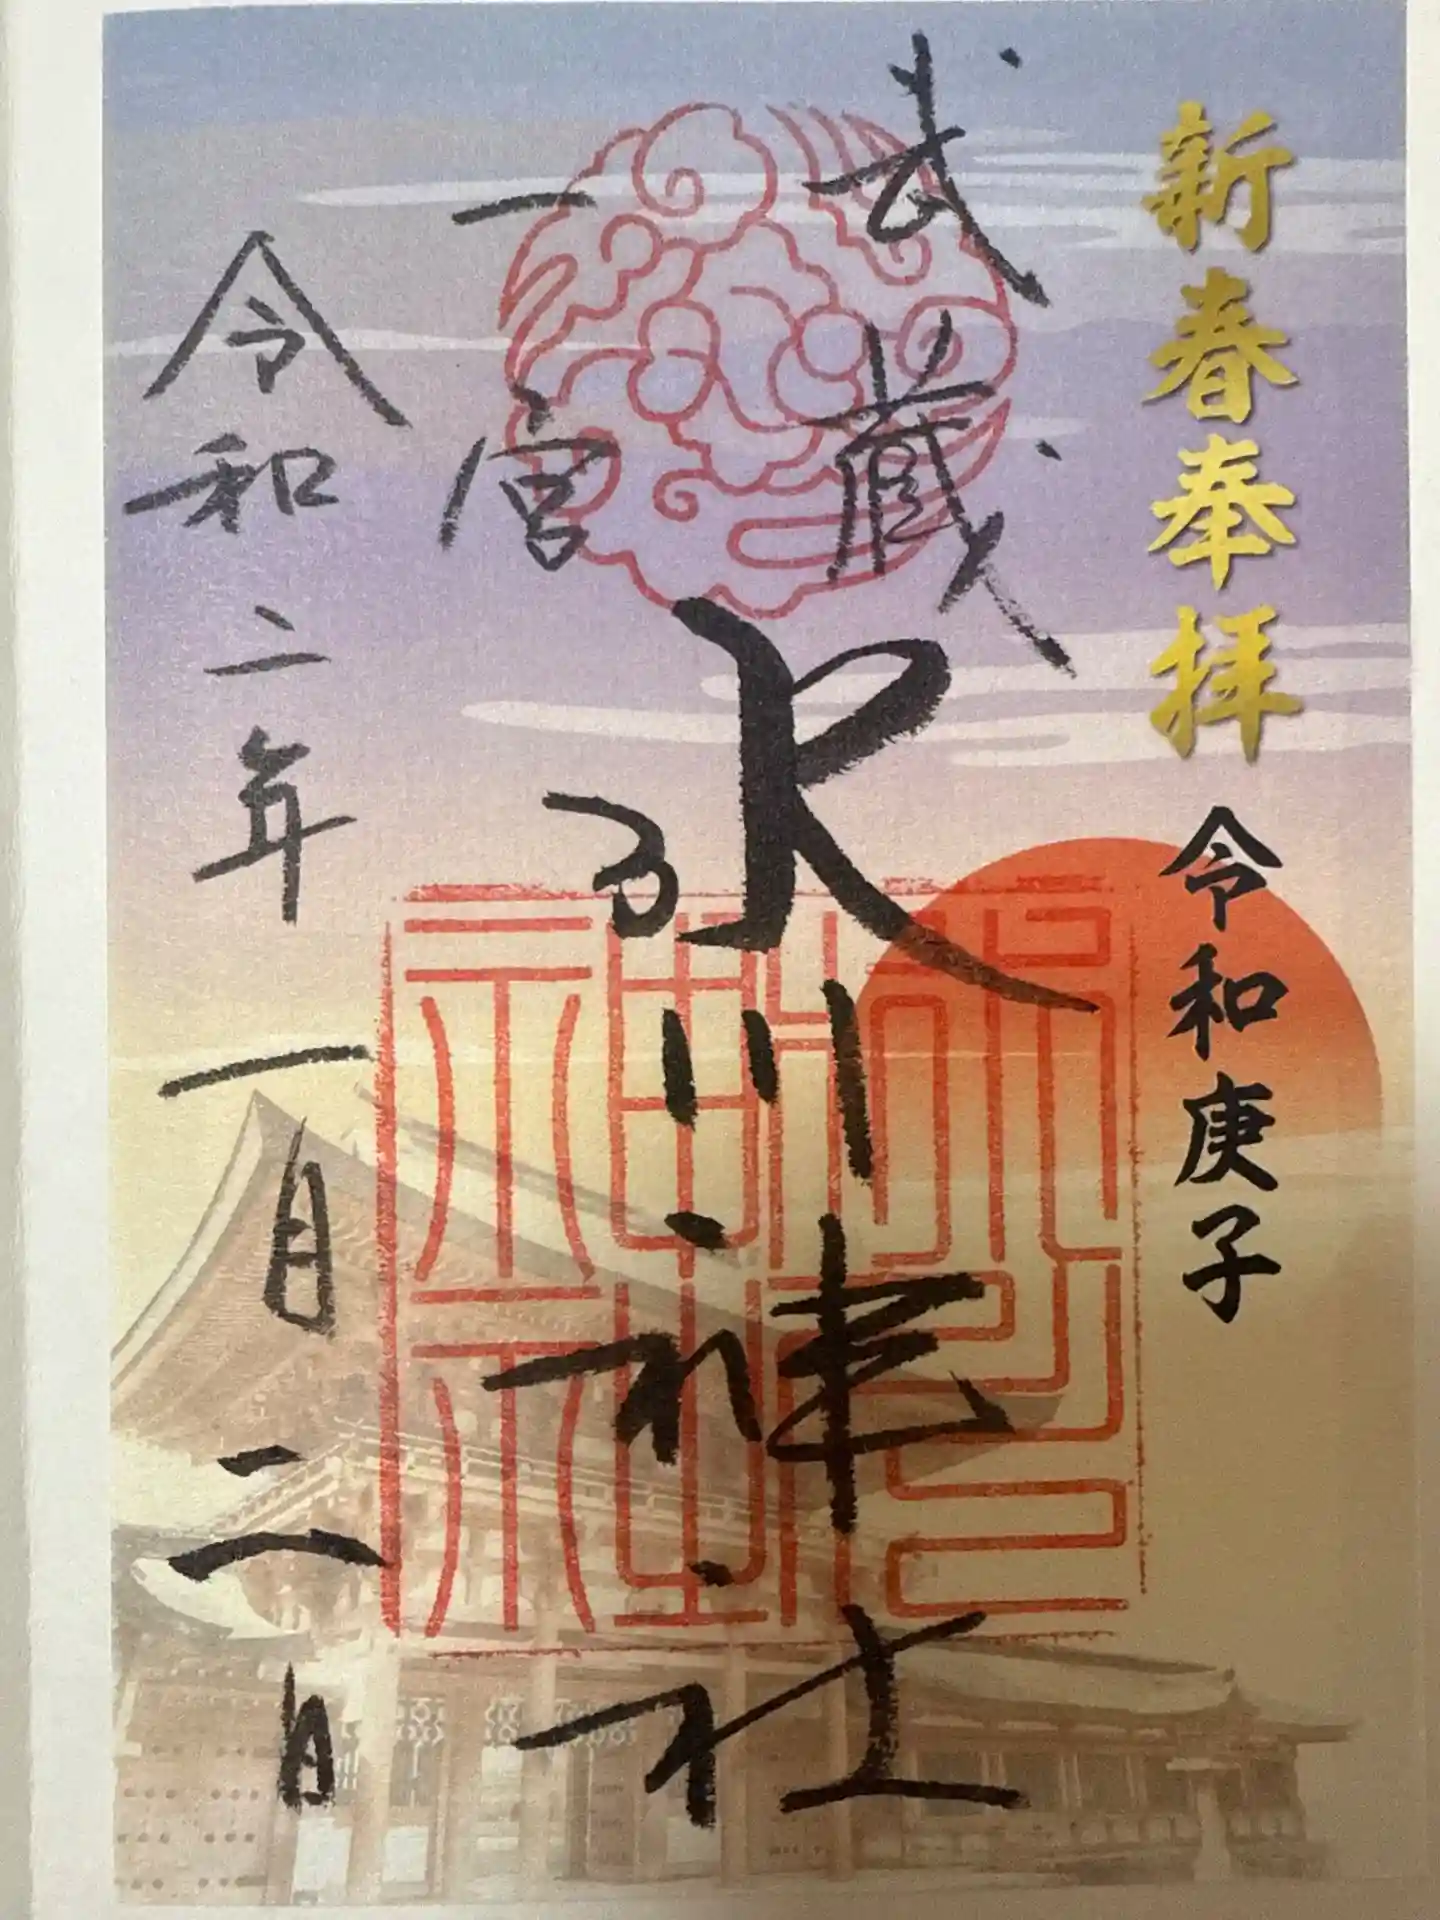 新春奉拝
令和庚子
武蔵
一宮
氷川神社
令和二年一月二日